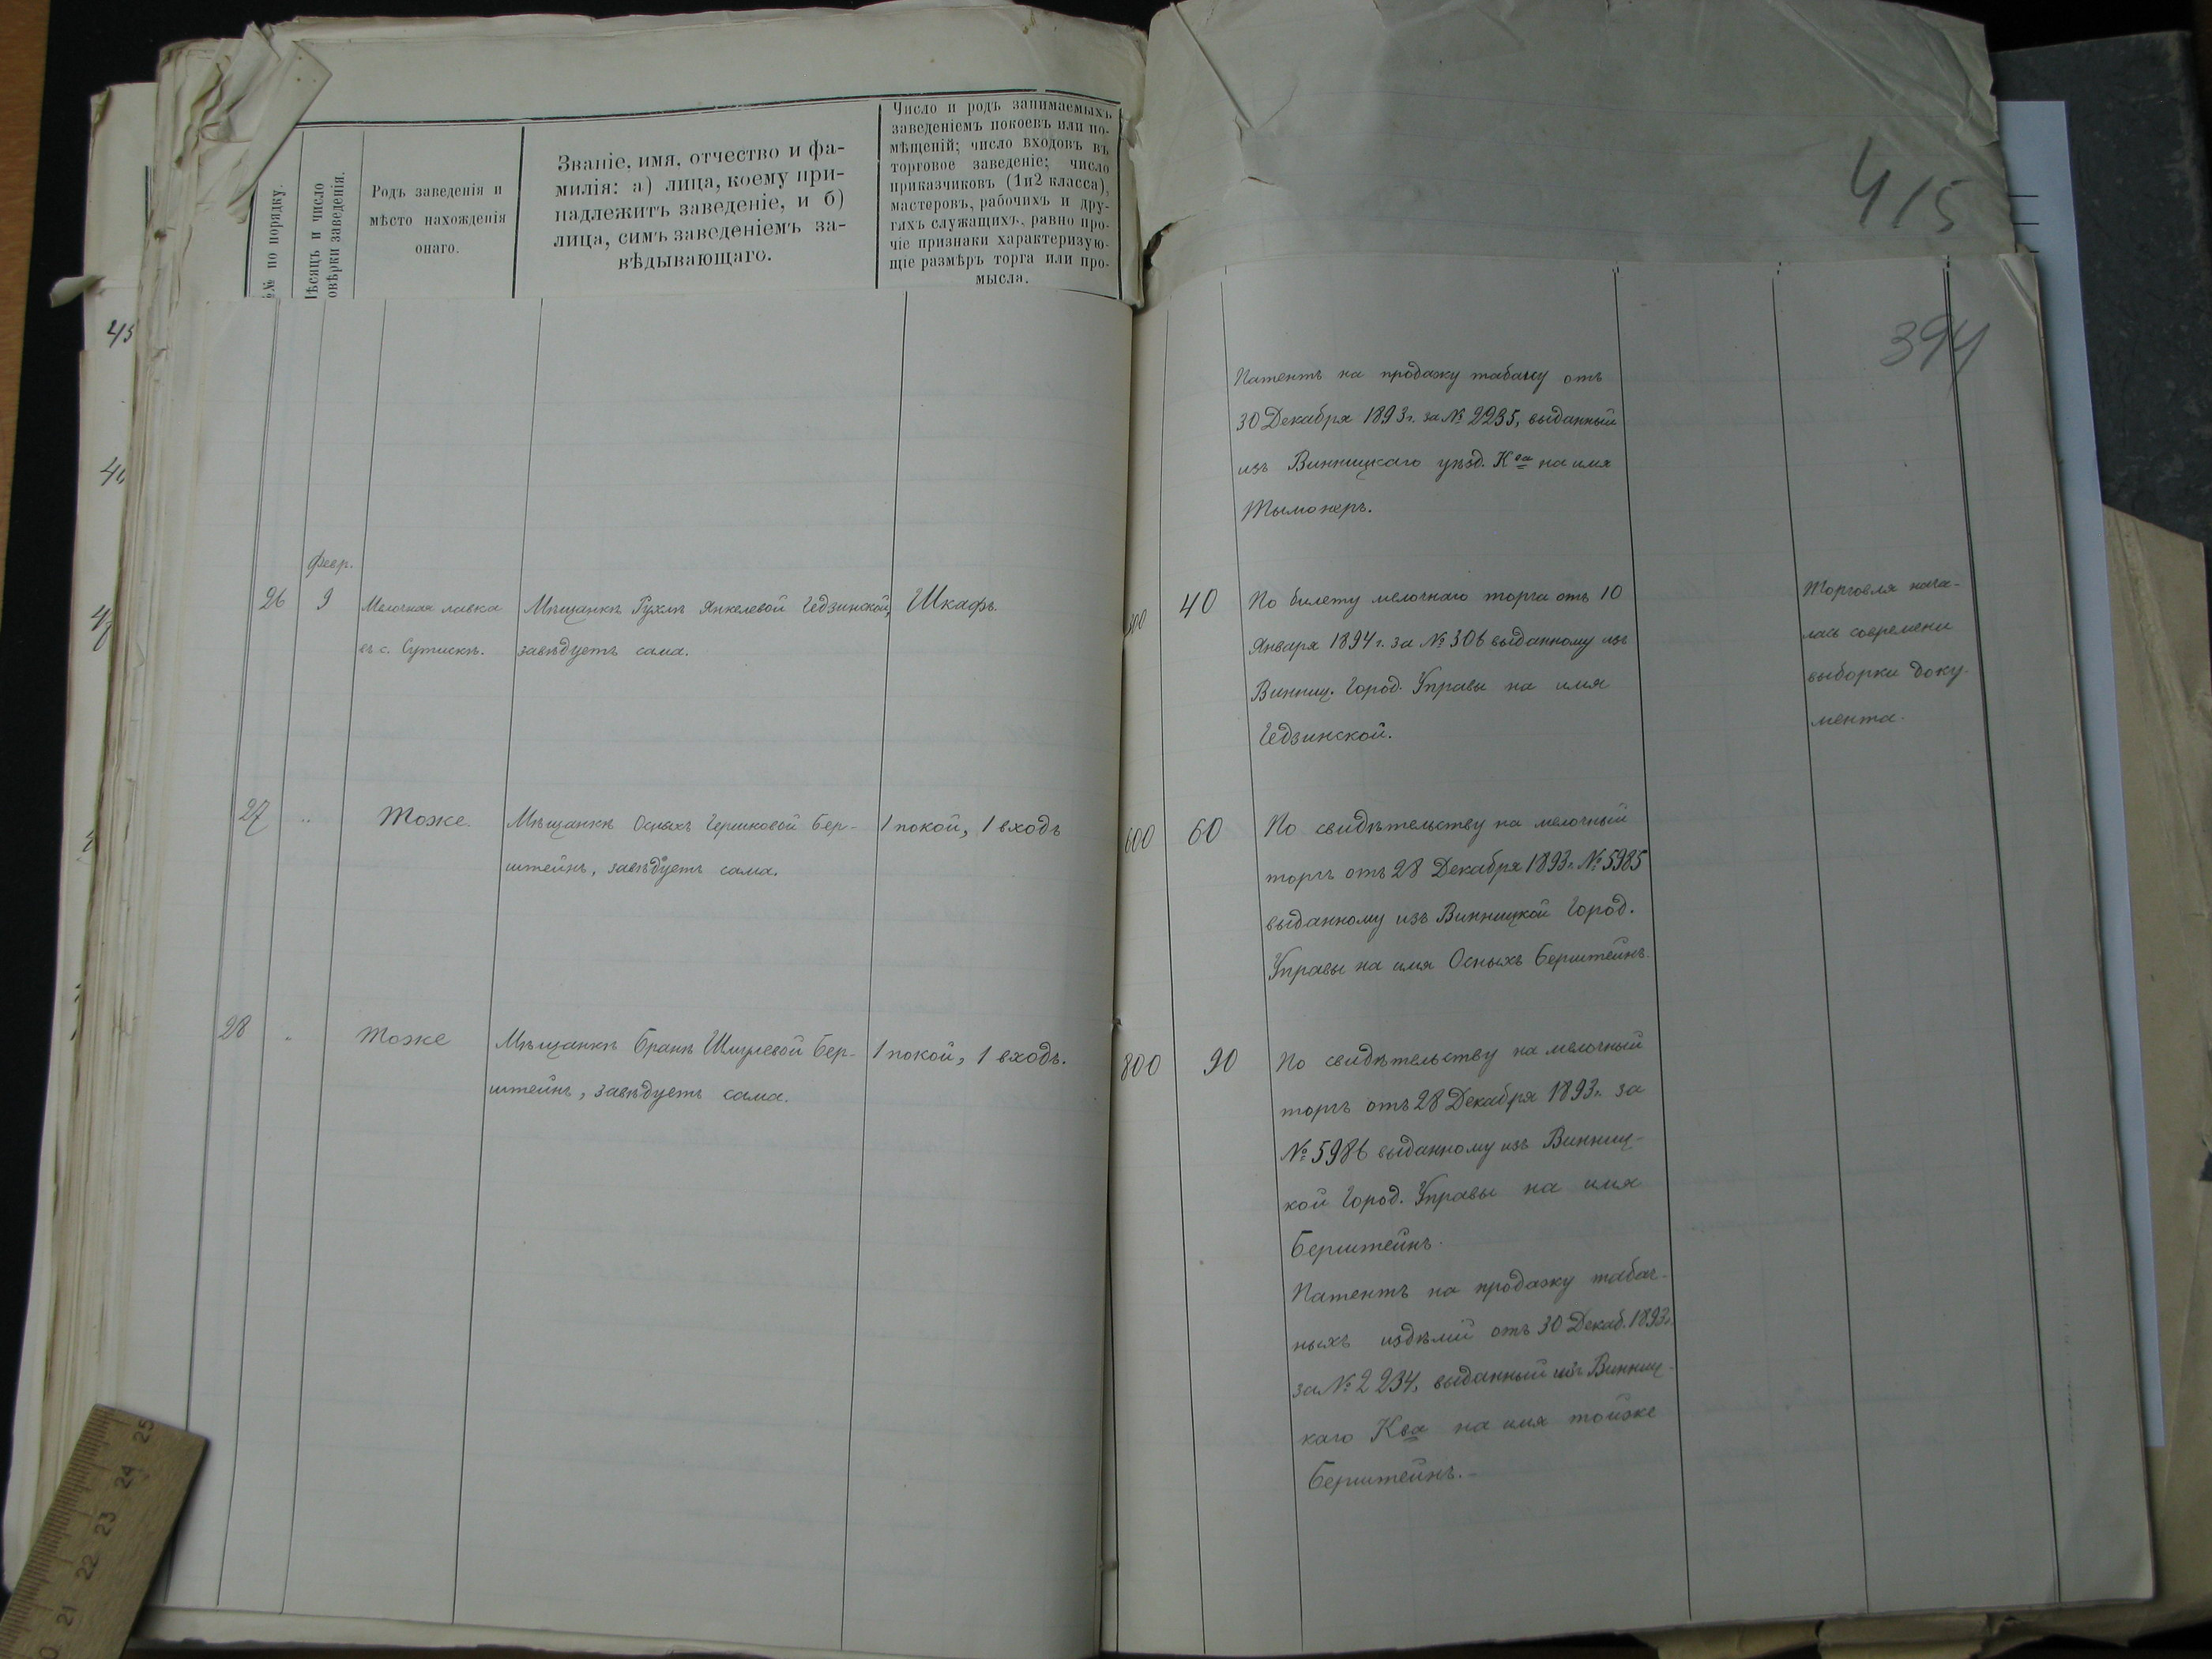 № по порядку.
Мѣсяцъ и число
повѣрки заведенія.
Родъ заведенія и
мѣсто нахожденія
онаго.
Званіе, имя, отчество и фа-
милія: а) лица, коему при-
надлежитъ заведеніе, и б)
лица, симъ заведеніемъ за-
вѣдывающаго.
Число и родъ занимаемыхъ
заведеніемъ покоевъ или по-
мѣщеній; число входовъ въ
торговое заведеніе; число
приказчиковъ (1 и 2 класса),
мастеровъ, рабочихъ и дру-
гихъ служащихъ, равно про-
чіе признаки характеризую-
щіе размѣръ торга или про-
мысла.
415
394
Патентъ на продажу табаку отъ
30 Декабря 1893 г. за № 2235, выданный
изъ Винницкаго уѣзд. Ква на имя
Тымонеръ.
26
Февр.
9
Мелочная лавка
въ с. Сутискъ.
Мѣщанкѣ Рухлѣ Янкелевой Гедзинской,
завѣдуетъ сама.
Шкафъ.
300
40
По билету мелочнаго торга отъ 10
Января 1894 г. за № 306 выданному изъ
Винниц. Город. Управы на имя
Гедзинской.
Торговля нача-
лась современи
выборки доку-
мента.
27
"
Тоже.
Мѣщанкѣ Осныхъ Гершковой Бер-
штейнъ, завѣдуетъ сама.
1 покой, 1 входъ
600
60
По свидѣтельству на мелочный
торгъ отъ 28 Декабря 1893 г. № 5985
выданному изъ Винницкой Город.
Управы на имя Осныхъ Берштейнъ.
28
"
Тоже
Мѣщанкѣ Бранѣ Шмулевой Бер-
штейнъ, завѣдуетъ сама.
1 покой, 1 входъ.
800
90
По свидѣтельству на мелочный
торгъ отъ 28 Декабря 1893 г. за
№ 5986 выданному изъ Винниц-
кой Город. Управы на имя
Берштейнъ.
Патентъ на продажу табач-
ныхъ издѣлій отъ 30 Декаб. 1893 г.
за № 2234, выданный изъ Винниц-
каго Ква на имя тойже
Берштейнъ.
21 22 23 24 25